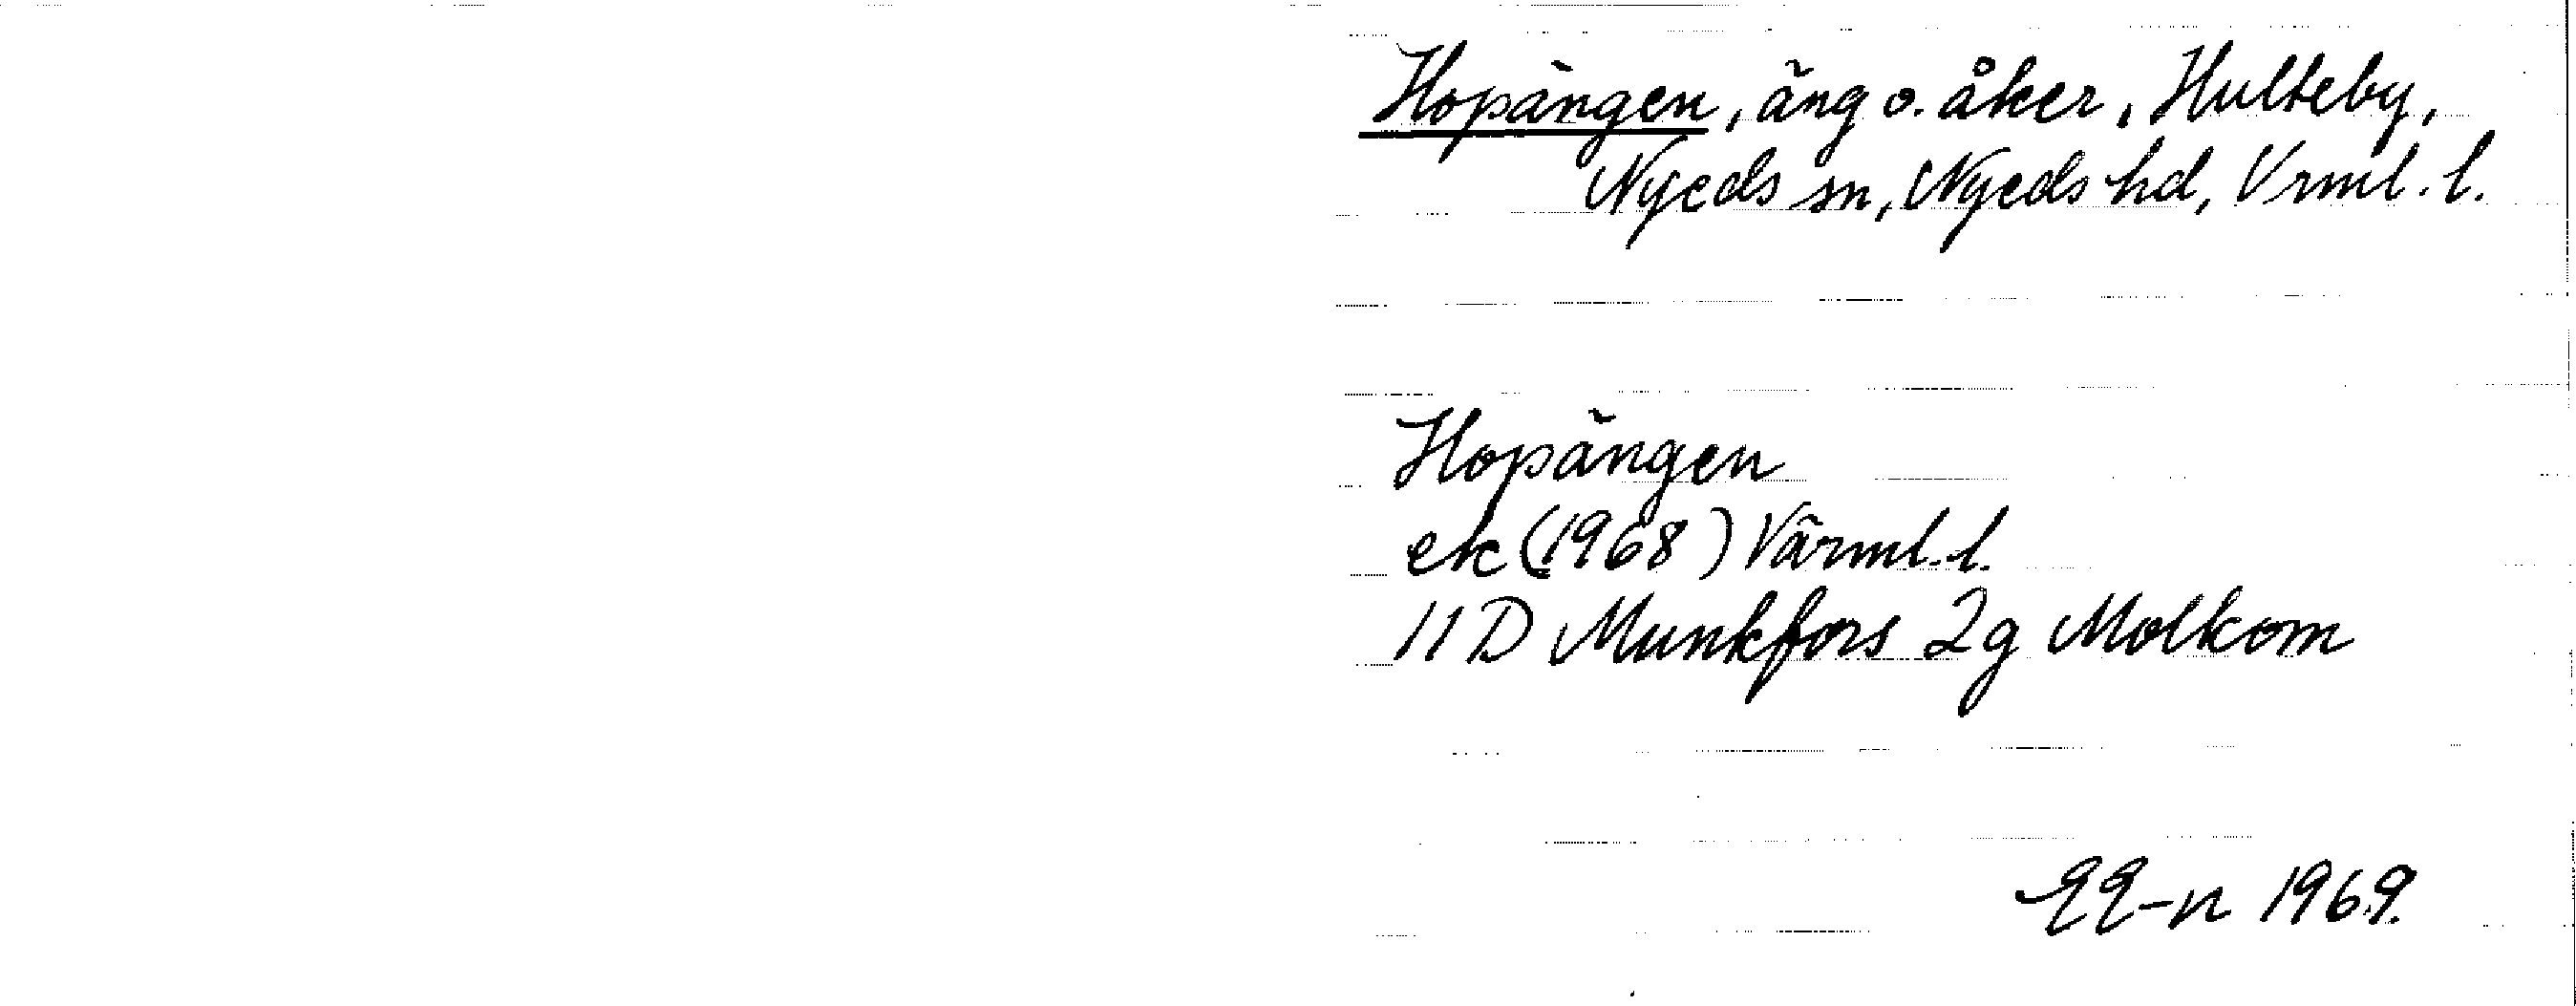 Hopängen, äng o. åker, Hulteby,
Nyeds sn, Nyeds hd, Vrml. l.
Hopängen
ek (1968) Värml. l.
11 D Munkfors 2g Molkom
EE-n 1969.